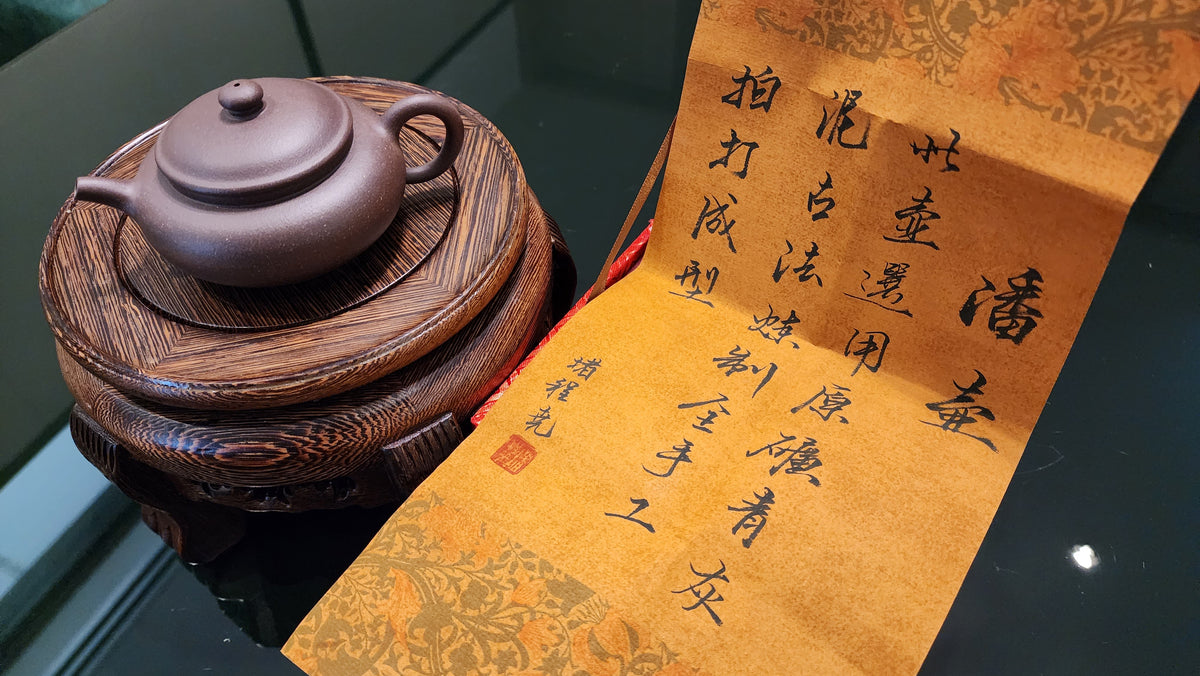 潘壺
此壺選用原礦青灰
泥古法煉制全手工
拍打成型
堵程尧